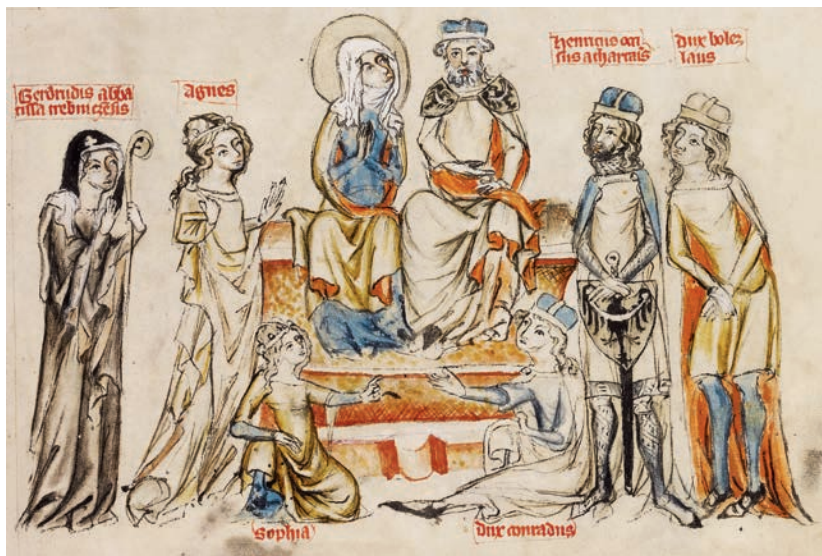 Gerdrudis abba
tissa trebniczēsis
agnes
henricus occi
sus a thartaris
dux bolez
laus
Sophia
dux conradus